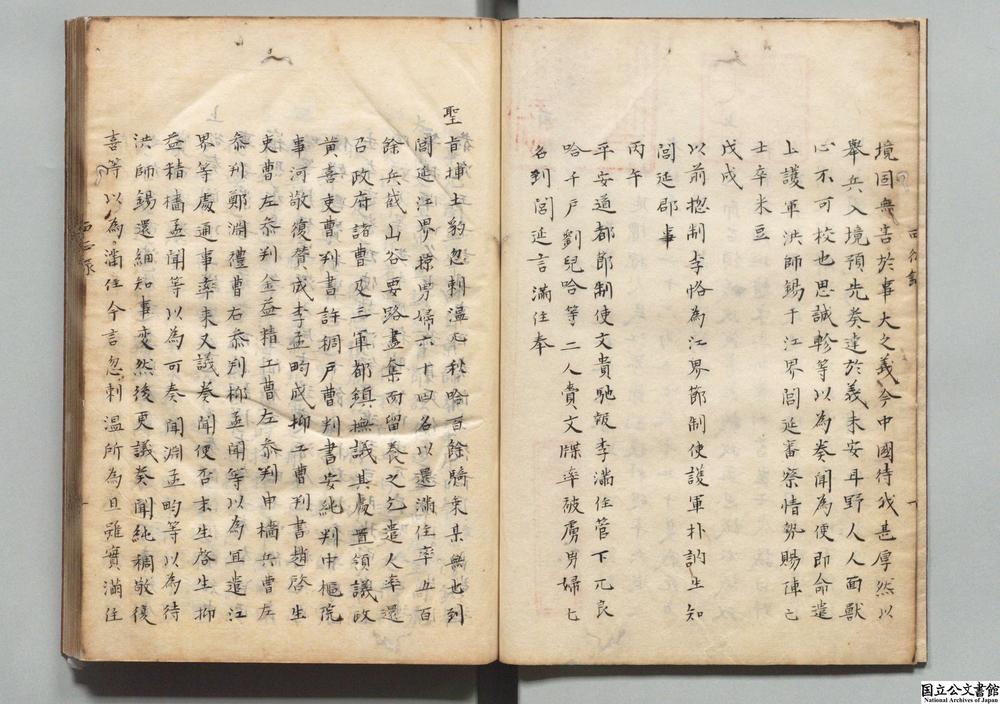 境固無害於事大之義今中國待我甚厚然以
舉兵入境預先奏達於義未安耳野人人面獸
心不可校也思誠軫等以為奏聞為便即命遣
上護軍洪師錫于江界閭延審察情勢賜陣亡
士卒米豆
戊戌
以前摠制李恪為江界節制使護軍朴訥生知
閭延郡事
丙午
平安道都節制使文貴馳報李滿住管下兀良
哈千戶劉兒哈等二人賫文牒率被虜男婦七
名到閭延言滿住奉
聖旨捕土豹忽剌溫兀狄哈百餘騎来某無也到
閭延江界掠男婦六十四名以還滿住率五百
餘兵截山谷要路盡集而留養之乞遣人率還
召政府諸曹及三軍都鎮撫議其處置領議政
黄喜吏曹判書許稠戶曹判書安純判中樞院
事河敬復贊成李孟畇成抑工曹判書趙啓生
吏曹左叅判金益精工曹左叅判申檣兵曹左
叅判鄭淵禮曹右叅判柳孟聞等以為宜遣江
界等處通事率来又議奏聞便否末生啓生抑
益精檣孟聞等以為可奏聞淵孟畇等以為待
洪師錫還細知事變然後更議奏聞純稠敬復
喜等以為滿住今言忽剌溫所為且雖實滿住
西征錄
国立公文書館
National Archives of Japan